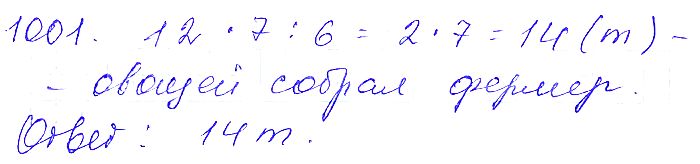 1001. 12 · 7 : 6 = 2 · 7 = 14 (т) -
- овощей собрал фермер.
Ответ: 14 т.